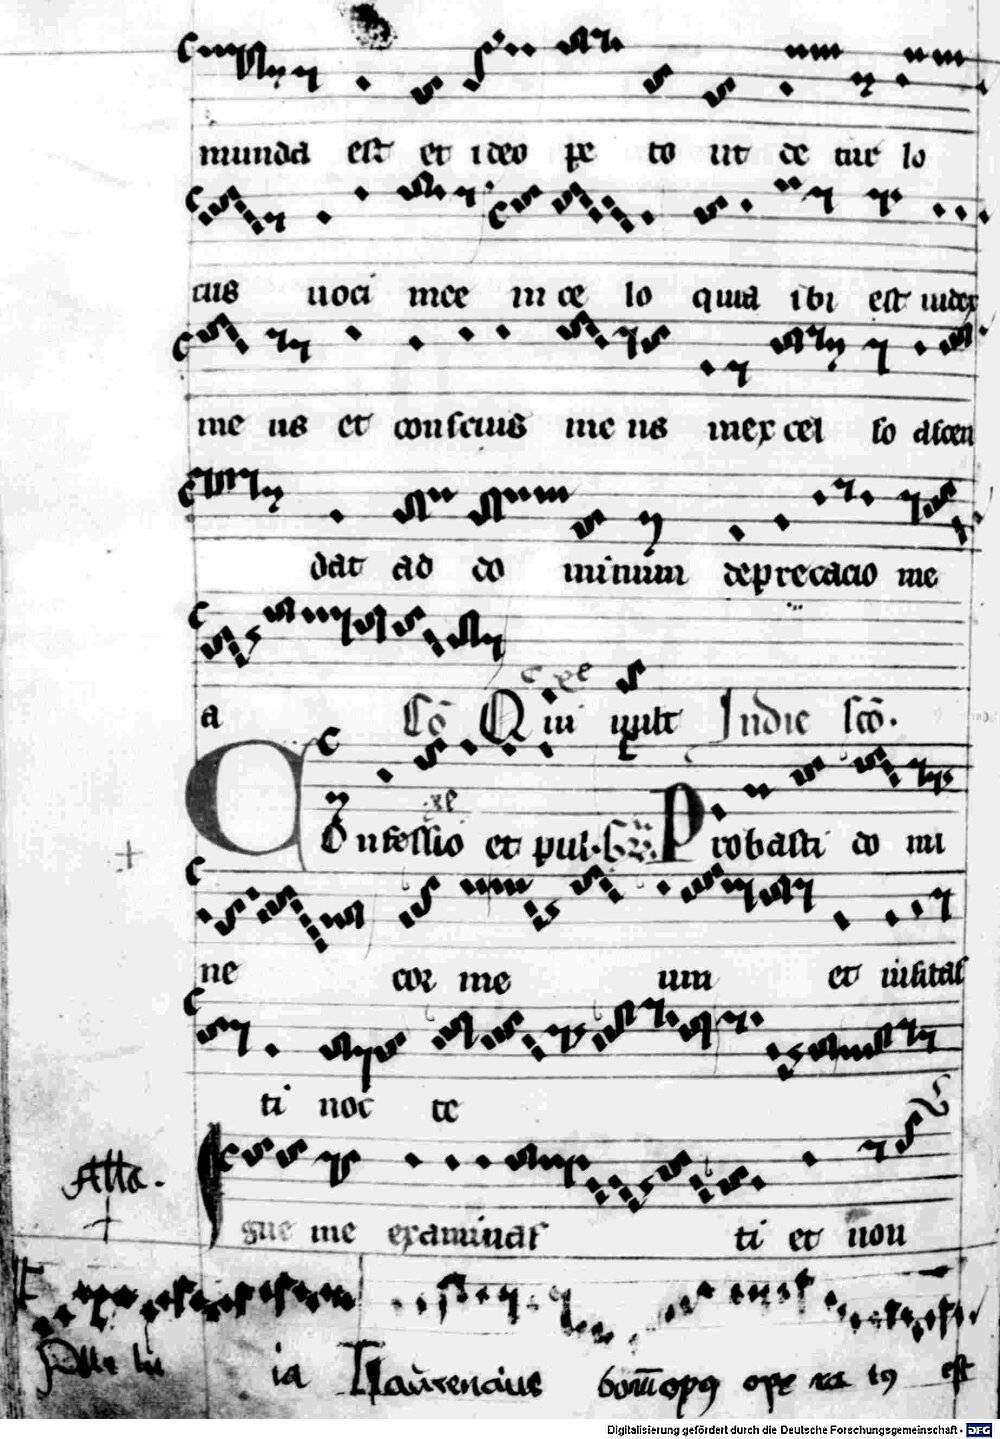 munda est et ideo pe to ut de tur lo
cus uoci mee in ce lo quia ibi est iudex
me us et conscius me us in ex cel so ascen
dat ad do minum deprecacio me
a Cō Qui uult In die scō.
Confessio et pul. Gr̄. Probasti do mi
ne cor me um et uisitas
ti noc te
gne me examinas ti et non
Alla.
Alle lu ia laurencius bonū opus ope ra tus est
Digitalisierung gefördert durch die Deutsche Forschungsgemeinschaft - DFG